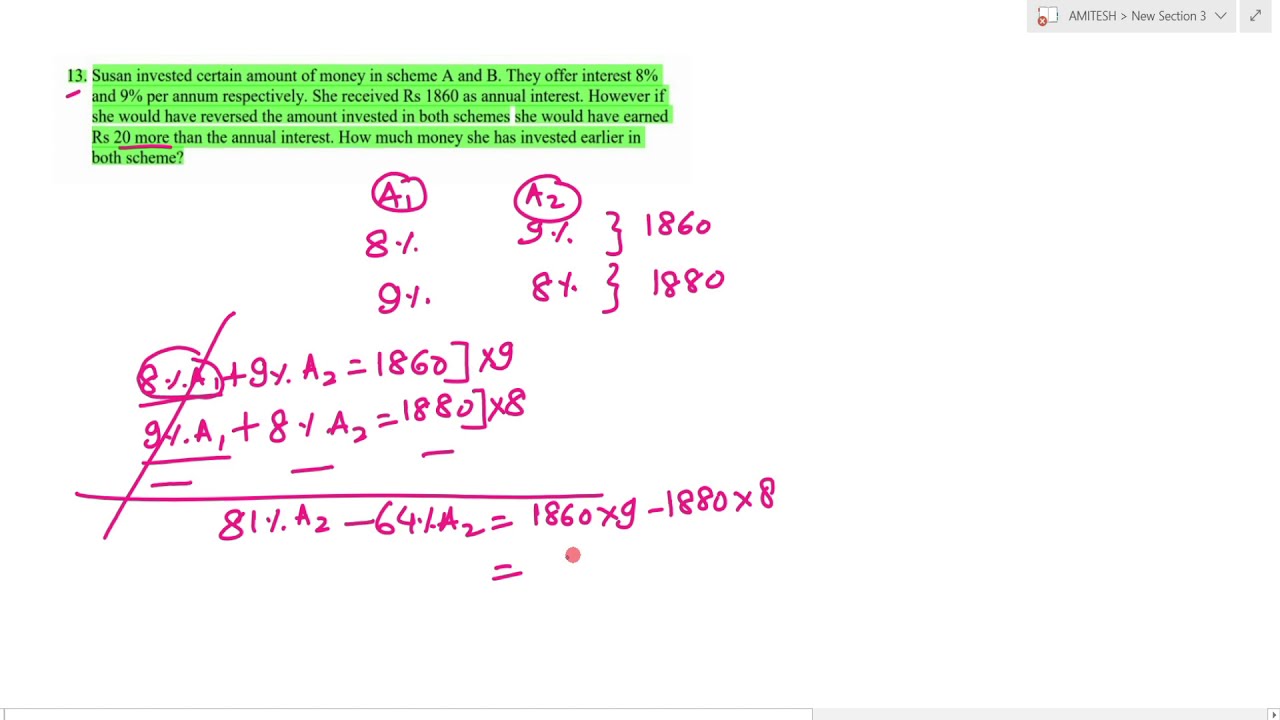 AMITESH > New Section 3
13. Susan invested certain amount of money in scheme A and B. They offer interest 8%
and 9% per annum respectively. She received Rs 1860 as annual interest. However if
she would have reversed the amount invested in both schemes she would have earned
Rs 20 more than the annual interest. How much money she has invested earlier in
both scheme?
A₁ A₂
8% 9% } 1860
9% 8% } 1880
8%A₁ + 9%A₂ = 1860] ×9
9%A₁ + 8%A₂ = 1880] ×8
81%A₂ − 64%A₂ = 1860×9 − 1880×8
=